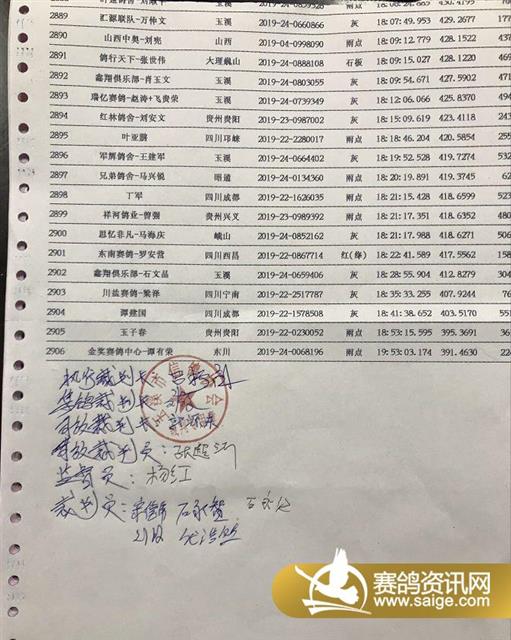 2889 汇源联队-万仲文 玉溪 2019-24-0660866 灰 18:07:49.953 429.2677
2890 山西中奥-刘宪 山西 2019-04-0998090 雨点 18:09:12.779 428.1522
2891 鸽行天下-张世伟 大理巍山 2019-24-0888108 石板 18:09:15.027 428.1220
2892 鑫翔俱乐部-肖玉文 玉溪 2019-24-0803055 灰 18:09:54.671 427.5902
2893 瑞忆赛鸽-赵涛+飞贵荣 玉溪 2019-24-0739349 灰 18:12:06.066 425.8370
2894 红林鸽舍-刘安文 贵州贵阳 2019-23-0987002 灰 18:15:09.619 423.4118
2895 叶亚鹏 四川邛崃 2019-22-2280017 雨点 18:18:46.204 420.5854
2896 军辉鸽舍-王建军 玉溪 2019-24-0664402 灰 18:19:52.528 419.7274
2897 兄弟鸽舍-马兴锐 昭通 2019-24-0134360 雨点 18:20:19.891 419.3745
2898 丁军 四川成都 2019-22-1626035 雨点 18:21:15.428 418.6599
2899 祥河鸽业-曾强 贵州兴义 2019-23-0989392 雨点 18:21:17.351 418.6352
2900 思忆非凡-马海庆 峨山 2019-24-0851262 灰 18:21:17.988 418.6271
2901 东南赛鸽-罗安营 四川西昌 2019-22-0867714 红(绛) 18:22:41.589 417.5562
2902 鑫翔俱乐部-石文晶 玉溪 2019-24-0659406 灰 18:28:55.904 412.8279
2903 川盐赛鸽-梁祥 四川宁南 2019-22-2517787 灰 18:35:33.255 407.9244
2904 谭建国 四川成都 2019-22-1578508 灰 18:41:38.652 403.5170
2905 玉子春 贵州贵阳 2019-22-0230052 雨点 18:53:15.595 395.3691
2906 金奖赛鸽中心-谭有荣 东川 2019-24-0068196 雨点 19:53:03.174 391.4630
执行裁判长：
集鸽裁判长：
司放裁判长：
司放裁判员：
监督员：杨红
裁判员：
赛鸽资讯网
www.saige.com